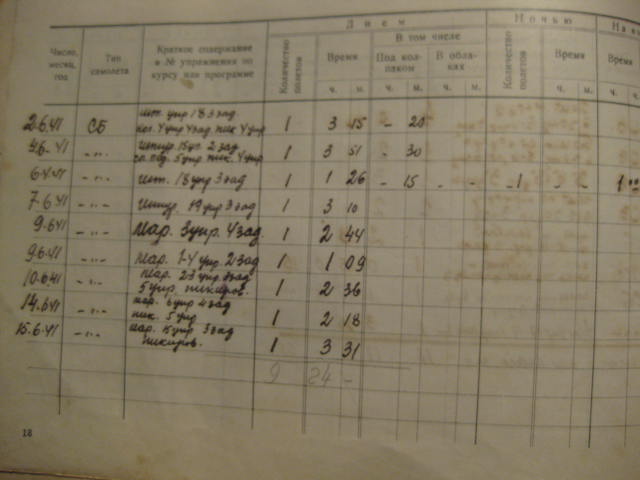 Днем Ночью
Число, месяц, год Тип самолета Краткое содержание и № упражнения по курсу или программе Количество полетов Время В том числе Количество полетов Время
Под колпаком В облаках
ч. м. ч. м. ч. м. ч. м. ч.
2.6.41 СБ упр 18 3 зад
4 упр 4 зад пик 4 упр 1 3 15 - 20
4.6.41 -"- 15 уп. 2 зад
5 упр пик. 4 упр 1 3 51 - 30
6.41 -"- 18 упр 3 зад 1 1 26 - 15 - - 1 - - 1
7.6.41 -"- 19 упр 3 зад 1 3 10
9.6.41 -"- Мар. 3 упр. 4 зад. 1 2 44
9.6.41 -"- Мар. 1-4 упр. 2 зад 1 1 09
10.6.41 -"- Мар. 23 упр. зад
5 упр. пикиров. 1 2 36
14.6.41 -"- Мар. 6 упр 4 зад
пик. 5 упр 1 2 18
15.6.41 -"- Мар. 15 упр 3 зад
пикиров. 1 3 31
9 24 -
18